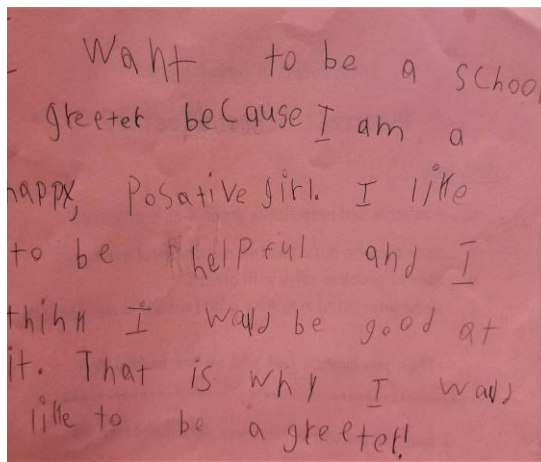 I want to be a school
greeter because I am a
happy, Posative girl. I like
to be helpful and I
think I wald be good at
it. That is why I wald
like to be a greeter!